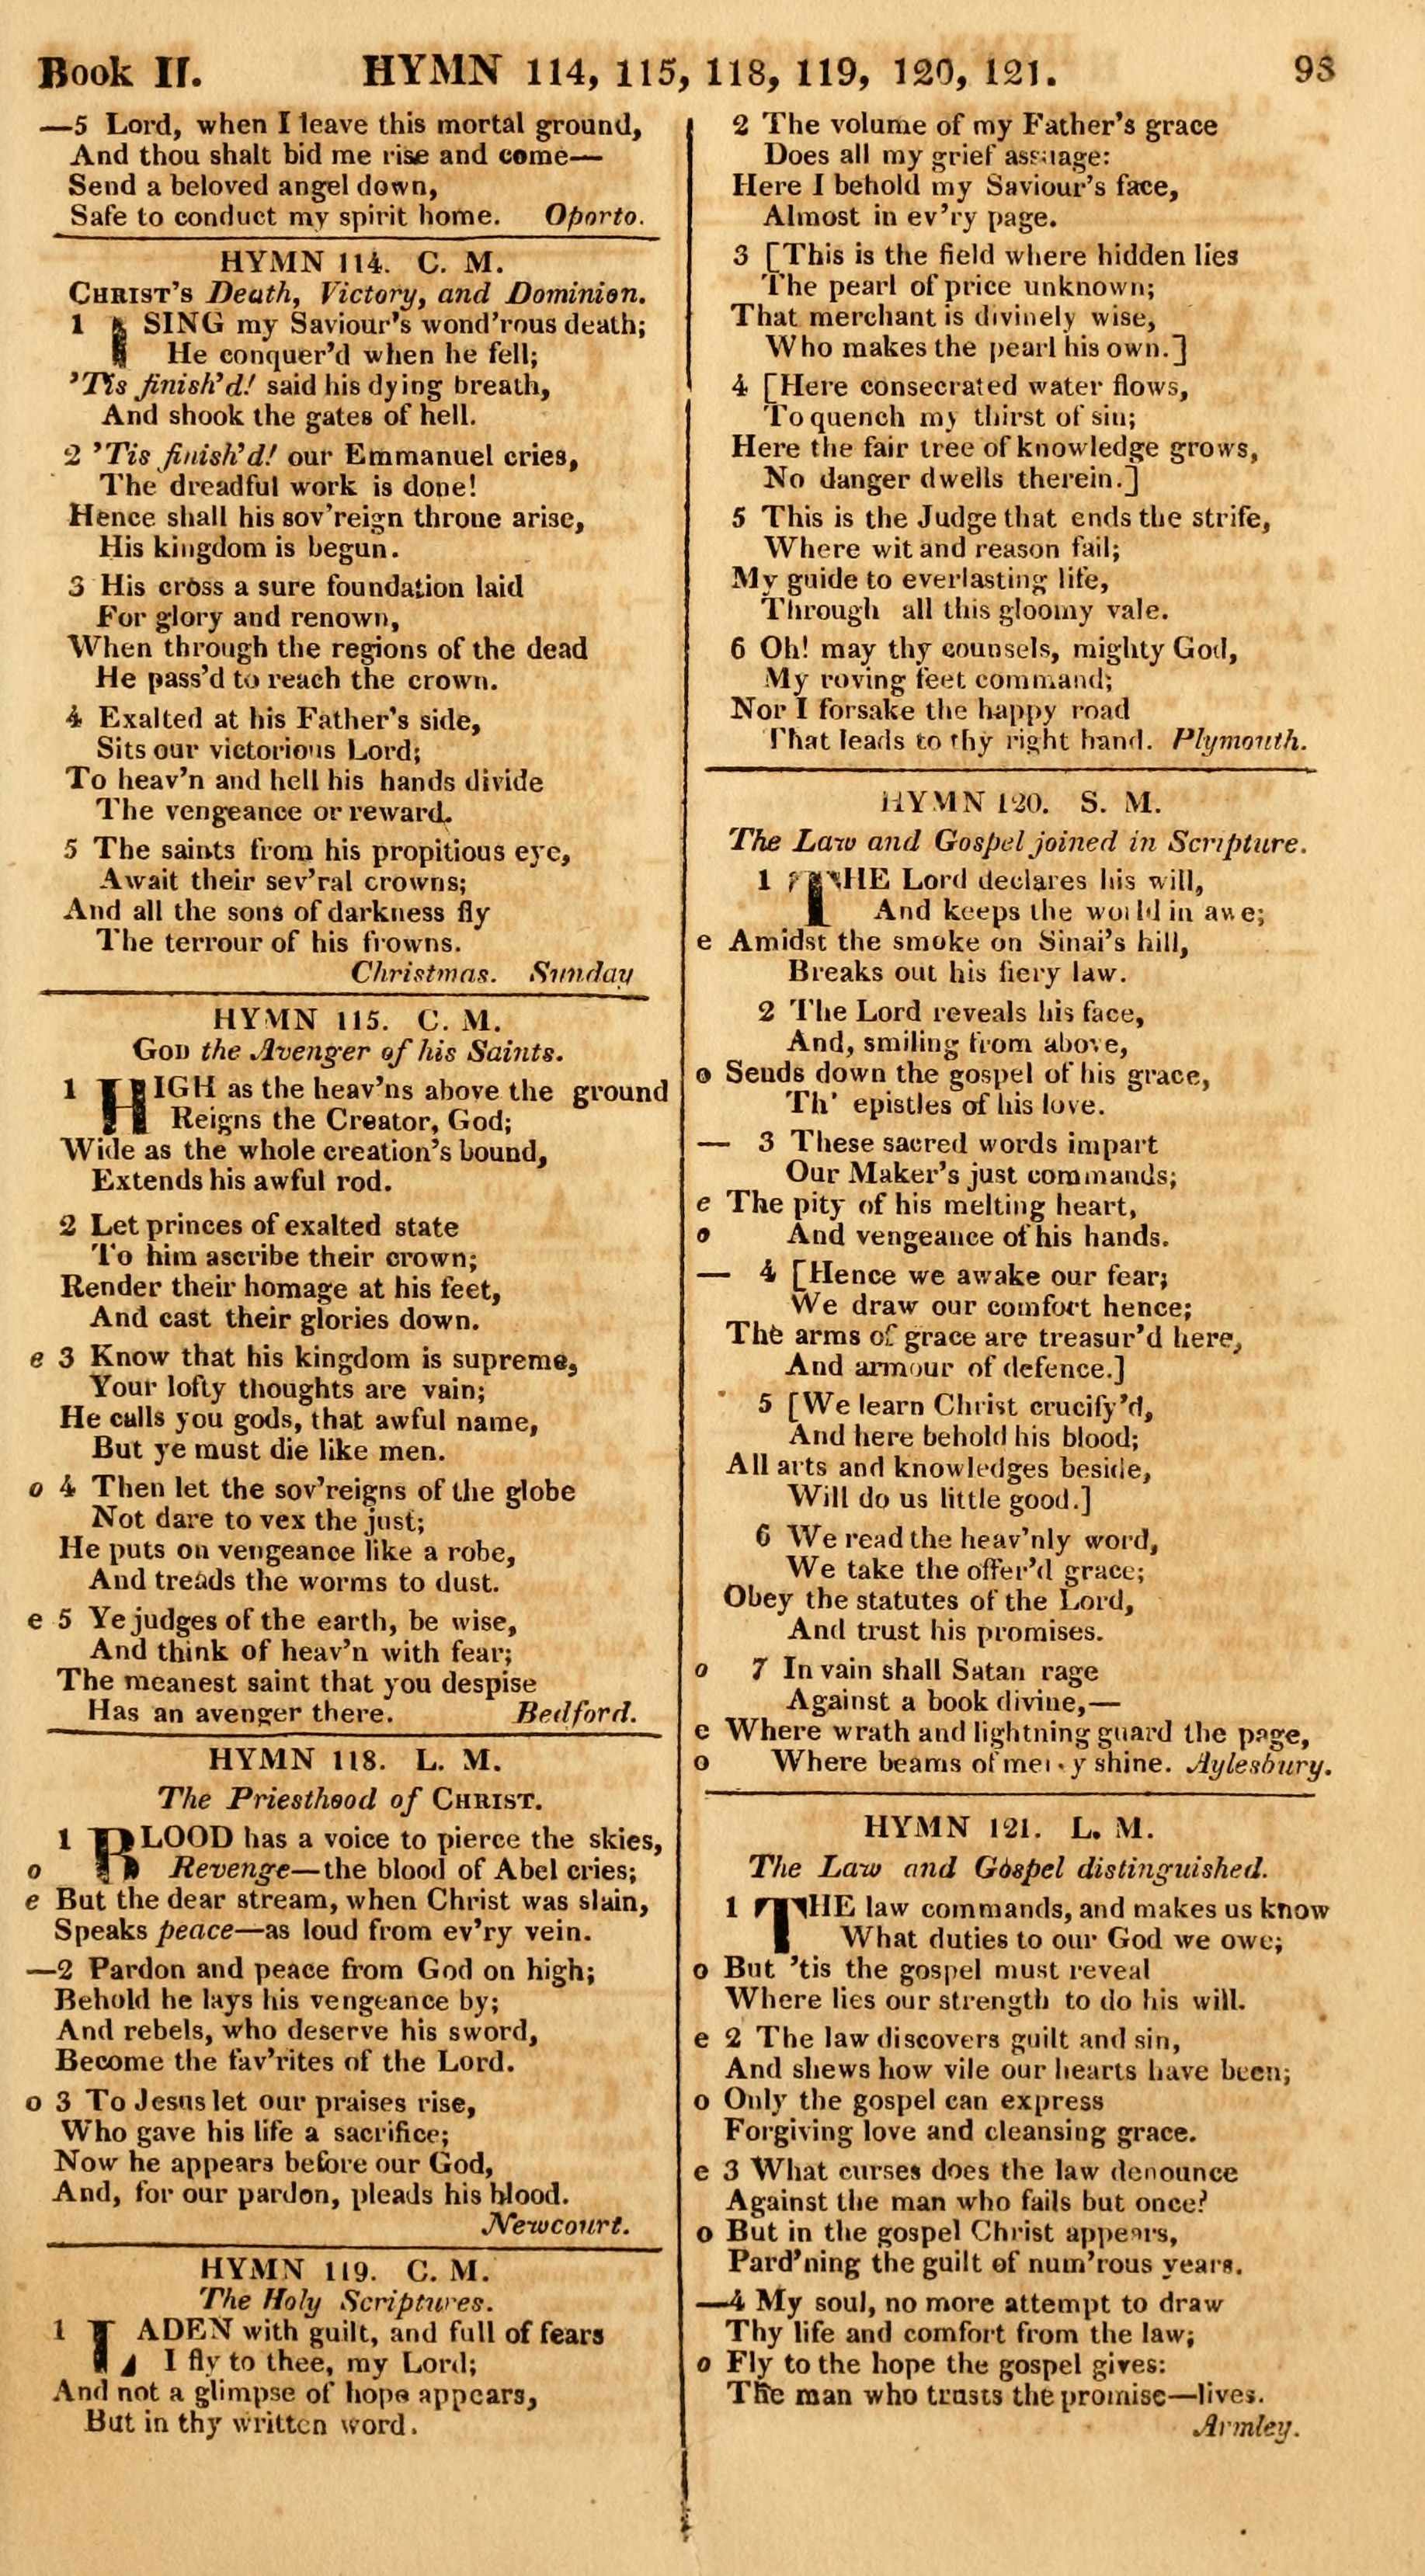 Book II. HYMN 114, 115, 118, 119, 120, 121. 93
—5 Lord, when I leave this mortal ground,
And thou shalt bid me rise and come—
Send a beloved angel down,
Safe to conduct my spirit home. Oporto.
HYMN 114. C. M.
CHRIST'S Death, Victory, and Dominion.
1 I SING my Saviour's wond'rous death;
He conquer'd when he fell;
'Tis finish'd! said his dying breath,
And shook the gates of hell.
2 'Tis finish'd! our Emmanuel cries,
The dreadful work is done!
Hence shall his sov'reign throne arise,
His kingdom is begun.
3 His cross a sure foundation laid
For glory and renown,
When through the regions of the dead
He pass'd to reach the crown.
4 Exalted at his Father's side,
Sits our victorious Lord;
To heav'n and hell his hands divide
The vengeance or reward.
5 The saints from his propitious eye,
Await their sev'ral crowns;
And all the sons of darkness fly
The terrour of his frowns.
Christmas. Sunday
HYMN 115. C. M.
GOD the Avenger of his Saints.
1 HIGH as the heav'ns above the ground
Reigns the Creator, God;
Wide as the whole creation's bound,
Extends his awful rod.
2 Let princes of exalted state
To him ascribe their crown;
Render their homage at his feet,
And cast their glories down.
e 3 Know that his kingdom is supreme,
Your lofty thoughts are vain;
He calls you gods, that awful name,
But ye must die like men.
o 4 Then let the sov'reigns of the globe
Not dare to vex the just;
He puts on vengeance like a robe,
And treads the worms to dust.
e 5 Ye judges of the earth, be wise,
And think of heav'n with fear;
The meanest saint that you despise
Has an avenger there. Bedford.
HYMN 118. L. M.
The Priesthood of CHRIST.
1 BLOOD has a voice to pierce the skies,
o Revenge—the blood of Abel cries;
e But the dear stream, when Christ was slain,
Speaks peace—as loud from ev'ry vein.
—2 Pardon and peace from God on high;
Behold he lays his vengeance by;
And rebels, who deserve his sword,
Become the fav'rites of the Lord.
o 3 To Jesus let our praises rise,
Who gave his life a sacrifice;
Now he appears before our God,
And, for our pardon, pleads his blood.
Newcourt.
HYMN 119. C. M.
The Holy Scriptures.
1 LADEN with guilt, and full of fears
I fly to thee, my Lord;
And not a glimpse of hope appears,
But in thy written word.
2 The volume of my Father's grace
Does all my grief assuage:
Here I behold my Saviour's face,
Almost in ev'ry page.
3 [This is the field where hidden lies
The pearl of price unknown;
That merchant is divinely wise,
Who makes the pearl his own.]
4 [Here consecrated water flows,
To quench my thirst of sin;
Here the fair tree of knowledge grows,
No danger dwells therein.]
5 This is the Judge that ends the strife,
Where wit and reason fail;
My guide to everlasting life,
Through all this gloomy vale.
6 Oh! may thy counsels, mighty God,
My roving feet command;
Nor I forsake the happy road
That leads to thy right hand. Plymouth.
HYMN 120. S. M.
The Law and Gospel joined in Scripture.
1 THE Lord declares his will,
And keeps the world in awe;
e Amidst the smoke on Sinai's hill,
Breaks out his fiery law.
2 The Lord reveals his face,
And, smiling from above,
o Sends down the gospel of his grace,
Th' epistles of his love.
— 3 These sacred words impart
Our Maker's just commands;
e The pity of his melting heart,
o And vengeance of his hands.
— 4 [Hence we awake our fear;
We draw our comfort hence;
The arms of grace are treasur'd here,
And armour of defence.]
5 [We learn Christ crucify'd,
And here behold his blood;
All arts and knowledges beside,
Will do us little good.]
6 We read the heav'nly word,
We take the offer'd grace;
Obey the statutes of the Lord,
And trust his promises.
o 7 In vain shall Satan rage
Against a book divine,—
e Where wrath and lightning guard the page,
o Where beams of mercy shine. Aylesbury.
HYMN 121. L. M.
The Law and Gospel distinguished.
1 THE law commands, and makes us know
What duties to our God we owe;
o But 'tis the gospel must reveal
Where lies our strength to do his will.
e 2 The law discovers guilt and sin,
And shews how vile our hearts have been;
o Only the gospel can express
Forgiving love and cleansing grace.
e 3 What curses does the law denounce
Against the man who fails but once?
o But in the gospel Christ appears,
Pard'ning the guilt of num'rous years.
—4 My soul, no more attempt to draw
Thy life and comfort from the law;
o Fly to the hope the gospel gives:
The man who trusts the promise—lives.
Armley.